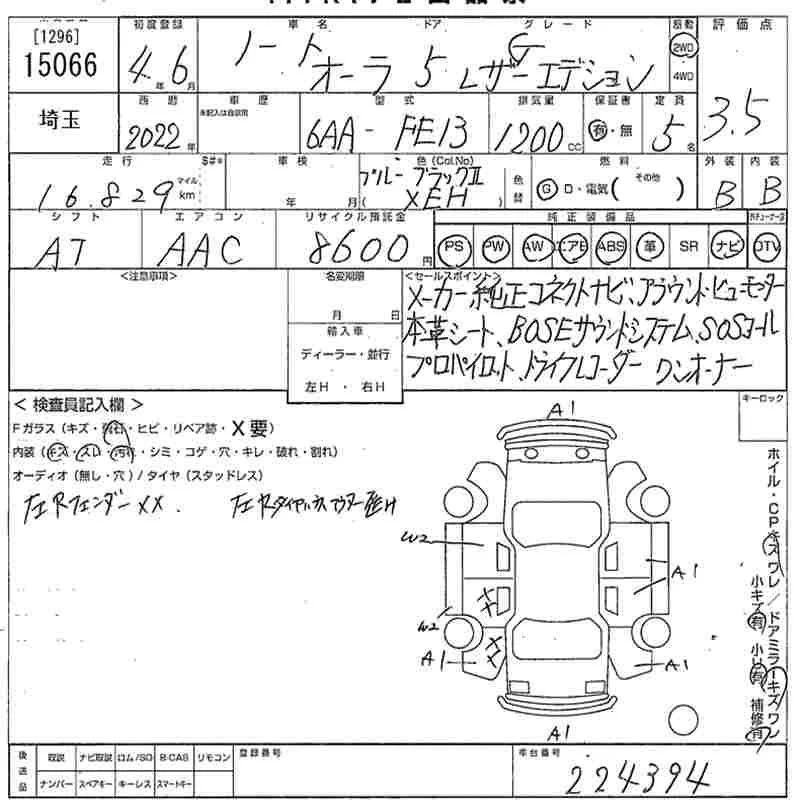 [1296]
15066
初度登録 車名 ドア グレード 駆動 評価点
4年6月 ノート オーラ 5 G レザーエディション 2WD 4WD 3.5
埼玉
西暦 車歴 型式 排気量 保証書 定員
2022年 未記入は自家用 6AA-FE13 1200cc 有・無 5名
走行 $#* 車検 色(Col.No) 燃料 外装 内装
16.829 マイル km 年 月 ブルーブラックⅡ (XEH) 色替 G D・電気 (その他) B B
シフト エアコン リサイクル預託金 純正装備品
AT AAC 8600円 PS PW AW エアB ABS 革 SR ナビ DTV
<注意事項> 名変期限 <セールスポイント>
月 日
メーカー純正コネクトナビ、アラウンドビューモニター
輸入車
本革シート、BOSEサウンドシステム、SOSコール
ディーラー・並行
プロパイロット、ドライブレコーダー ワンオーナー
左H・右H
<検査員記入欄> キーロック
Fガラス(キズ・飛石・ヒビ・リペア跡・X要)
内装(キズ・スレ・汚れ・シミ・コゲ・穴・キレ・破れ・割れ)
オーディオ(無し・穴)/タイヤ(スタッドレス)
左Rフェンダー XX.
A1
W2
A1
X X
W2
X X
A1
A1
A1
ホイル・CPキズワレ/ドアミラーキズワレ
小キズ有 小U有 補修有
後送品 取説 ナビ取説 ロム/SD B-CAS リモコン 登録番号 車台番号
ナンバー スペアキー キーレス スマートキー 224394